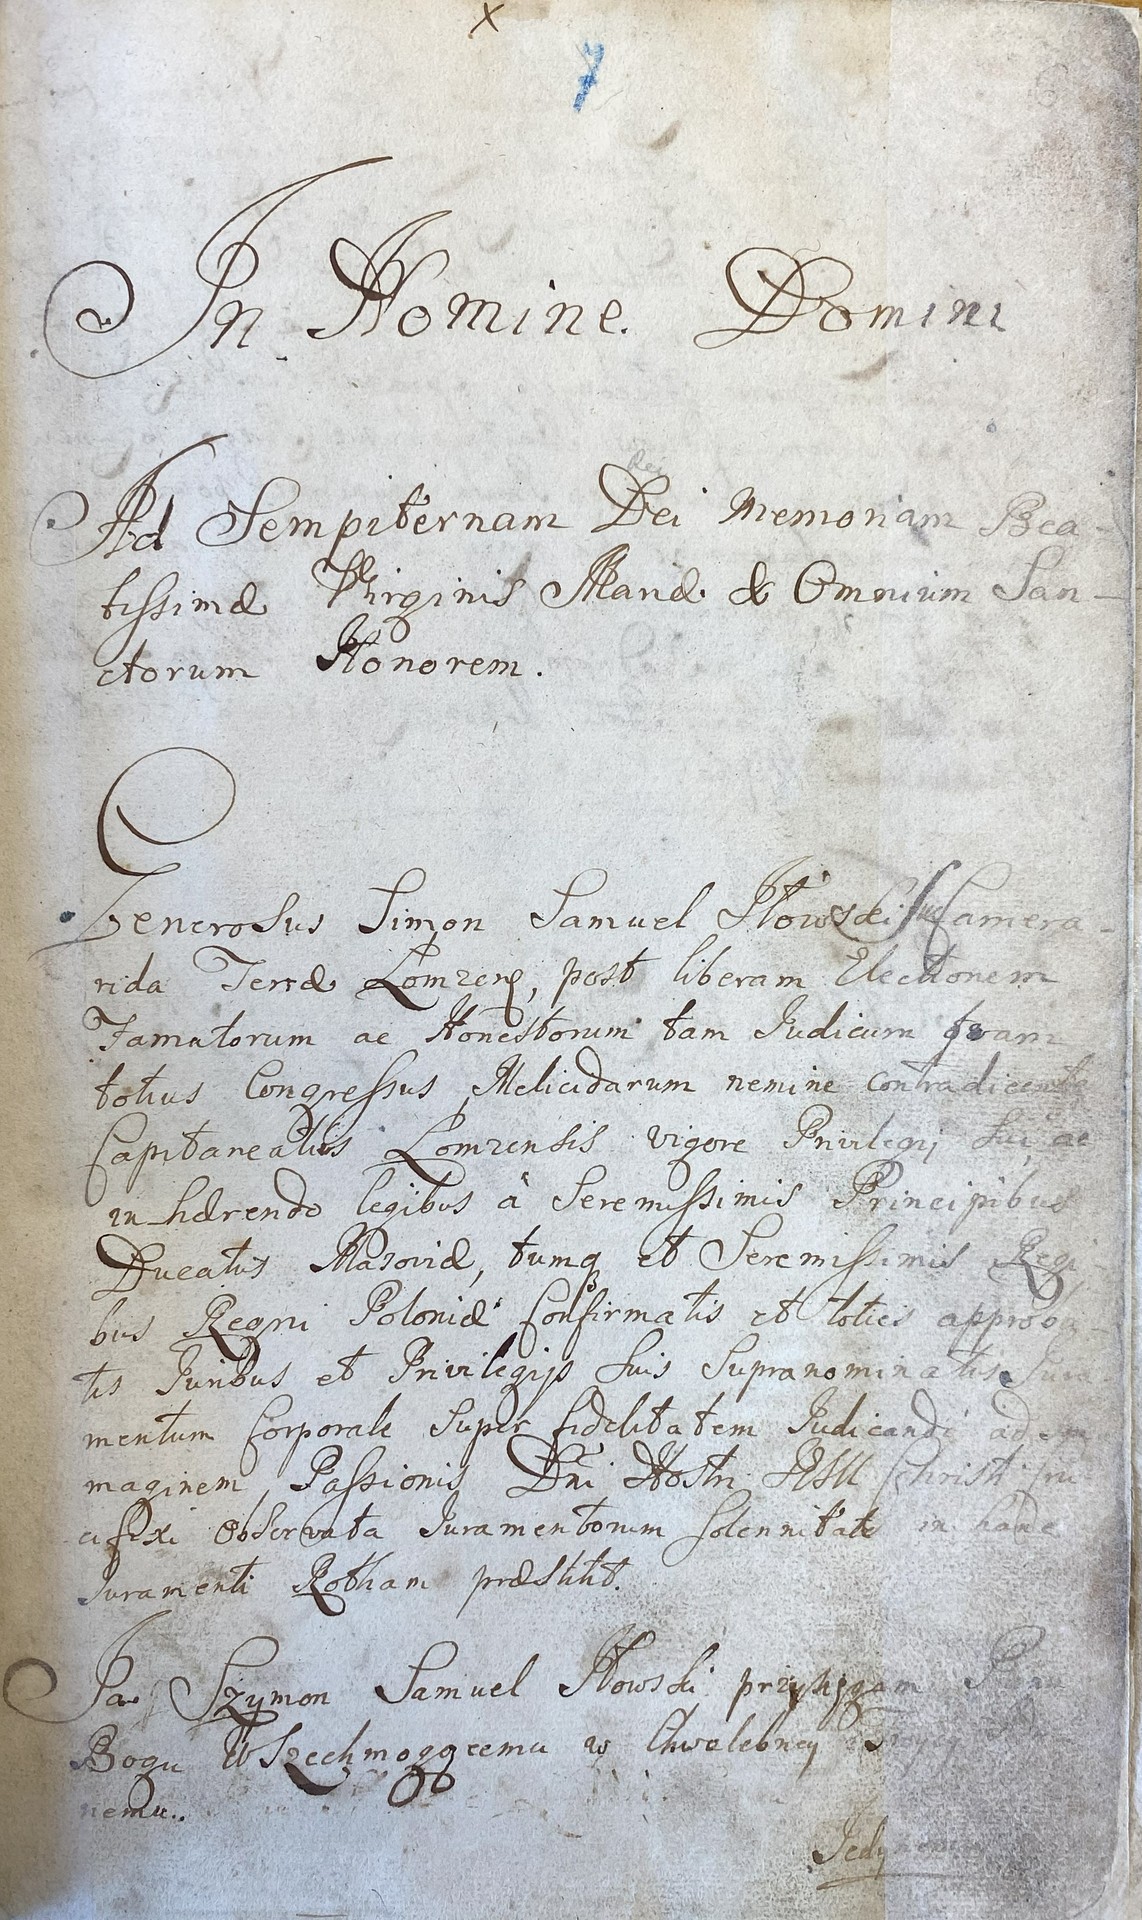 x
7
In Nomine Domini
Rei
Ad Sempiternam Dei Memoriam Bea-
tissimæ Virginis Mariæ & Omnium San-
ctorum Honorem.
Generosus Simon Samuel Camera-
rida Terræ Lomzen, post liberam Electionem
Famatorum ac Honestorum tam Judicum qvam
totius Congressus Melicidarum nemine contradicente
Capitaneatus Lomzensis vigore Privilegij sui, ac
in hærendo legibus à Serenissimis Principibus
Ducatus Masoviæ, tumq et Serenissimis Regi-
bus Regni Poloniæ Confirmatis et toties approba-
tis Juribus et Privilegijs suis Supranominatis Jura-
mentum Corporale super fidelitatem Judicandi ad
maginem Passionis Dni Nostri JESU Christi cru
cifixi observata Juramentorum solennitate in hanc
Juramenti Rotham præstitit.
Ja Szymon Samuel przysięgam Panu
Bogu Wszechmogącemu w Chwalebney
nemu.
Jedynemu